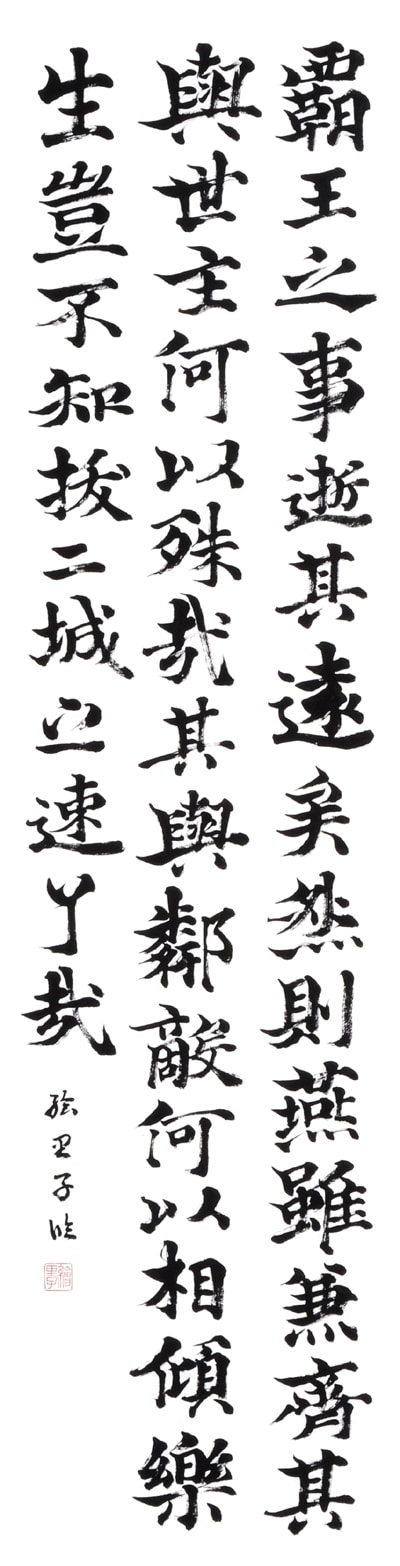 覇王之事逝其遠矣然則燕雖兼齊其
與世主何以殊哉其與鄰敵何以相傾樂
生豈不知拔二城之速了哉
絵里子臨